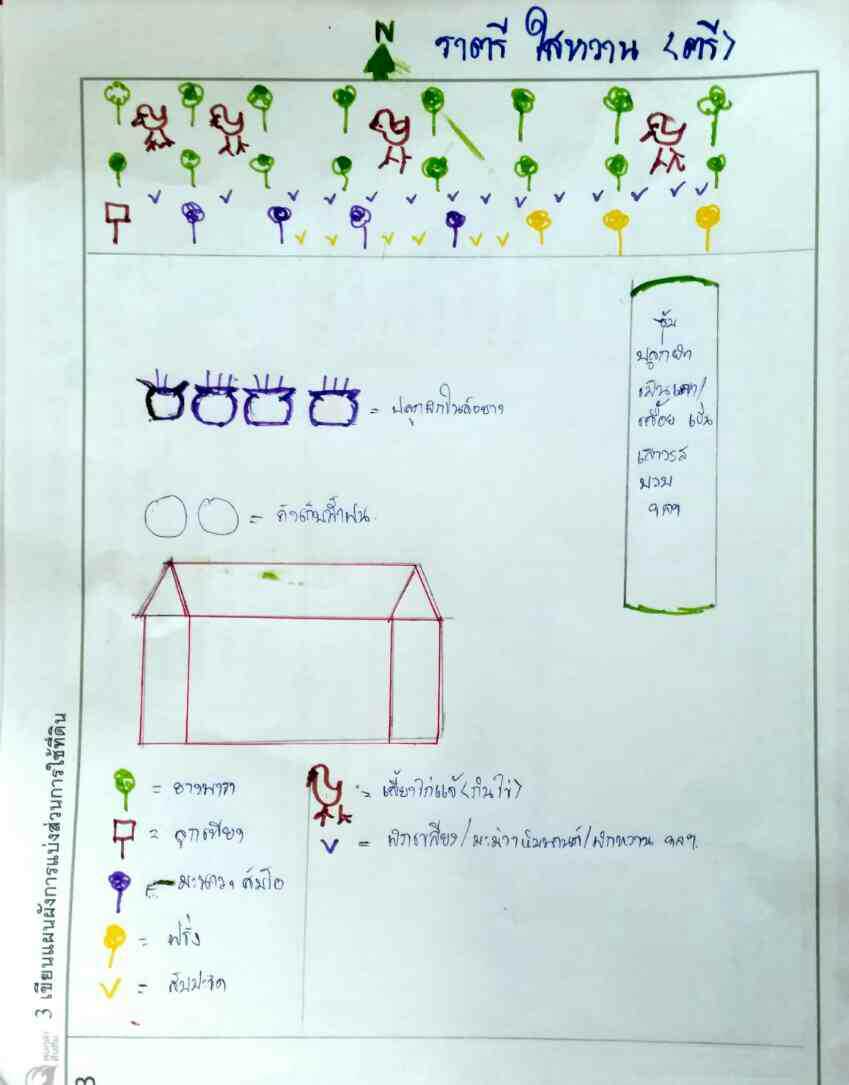 N
ราตรี ใสหวาน (ตรี)
ซุ้ม
ปลูกผัก
เลื้อย เช่น
เสาวรส
บวบ
ฯลฯ
= ปลูกผักในล้อยาง
= ถังเก็บน้ำฝน
= ยางพารา
= ลูกเหียง
มะนาว, ส้มโอ
= ฝรั่ง
= สับปะรด
= เลี้ยงไก่แจ้ (กินไข่)
= ผักเหลียง/มะม่วงหิมพานต์/ผักหวาน ฯลฯ
3 เขียนแผนผังการแบ่งส่วนการใช้ที่ดิน
3